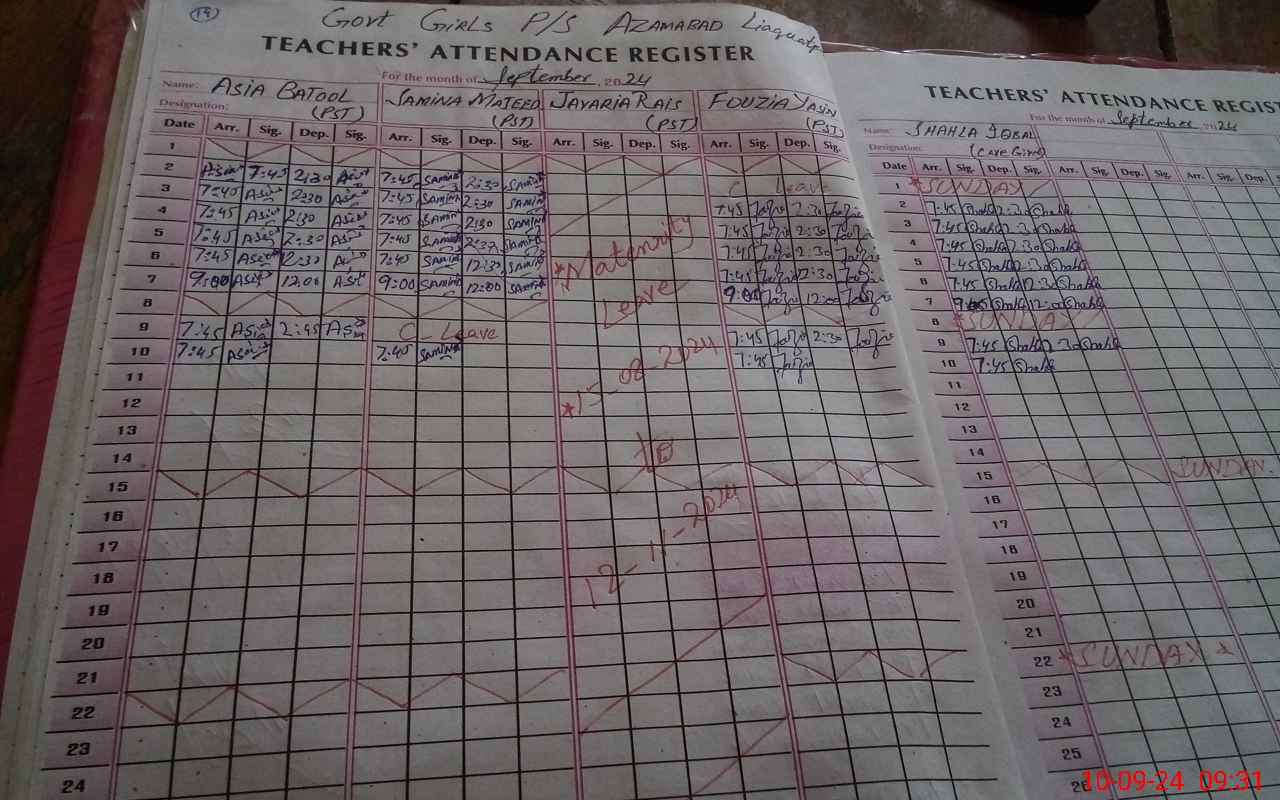 19
Govt Girls P/S Azamabad Liaquatp
TEACHERS' ATTENDANCE REGISTER
For the month of September 2024
Name: ASIA BATOOL SAMINA MAJEED JAVARIA RAIS FOUZIA YASIN
Designation: (PST) (PST) (PST) (PST)
Date Arr. Sig. Dep. Sig. Arr. Sig. Dep. Sig. Arr. Sig. Dep. Sig. Arr. Sig. Dep. Sig.
1
2 Asia 7:45 2:30 Asia 7:45 SAMINA 2:30 SAMINA C Leave
3 7:45 Asia 2:30 Asia 7:45 SAMINA 2:30 SAMINA 7:45 2:30
4 7:45 Asia 2:30 Asia 7:45 SAMINA 2:30 SAMINA 7:45 2:30
5 7:45 Asia 2:30 Asia 7:45 SAMINA 2:30 SAMINA 7:45 2:30
6 7:45 Asia 12:30 Asia 7:45 SAMINA 12:30 SAMINA 7:45 12:30
7 9:00 Asia 12:00 Asia 9:00 SAMINA 12:00 SAMINA 9:00 12:00
8
9 7:45 Asia 2:45 Asia C-Leave 7:45 2:30
10 7:45 Asia 7:45 SAMINA 7:45
*Maternity
Leave
*15-08-2024
to
12-11-2024
11
12
13
14
15
16
17
18
19
20
21
22
23
24
TEACHERS' ATTENDANCE REGIST
For the month of September 2024
Name: SHAHLA IQBAL
Designation: (Care Giver)
Date Arr. Sig. Dep. Sig. Arr. Sig. Dep. Sig. Arr. Sig. Dep.
1 *SUNDAY
2 7:45 Shahla 2:30 Shahla
3 7:45 Shahla 2:30 Shahla
4 7:45 Shahla 2:30 Shahla
5 7:45 Shahla 2:30 Shahla
6 7:45 Shahla 12:30 Shahla
7 9:05 Shahla 12:00 Shahla
8 *SUNDAY
9 7:45 Shahla 2:30 Shahla
10 7:45 Shahla
11
12
13
14
15 SUNDAY
16
17
18
19
20
21
22 *SUNDAY*
23
24
25
26
10-09-24 09:31